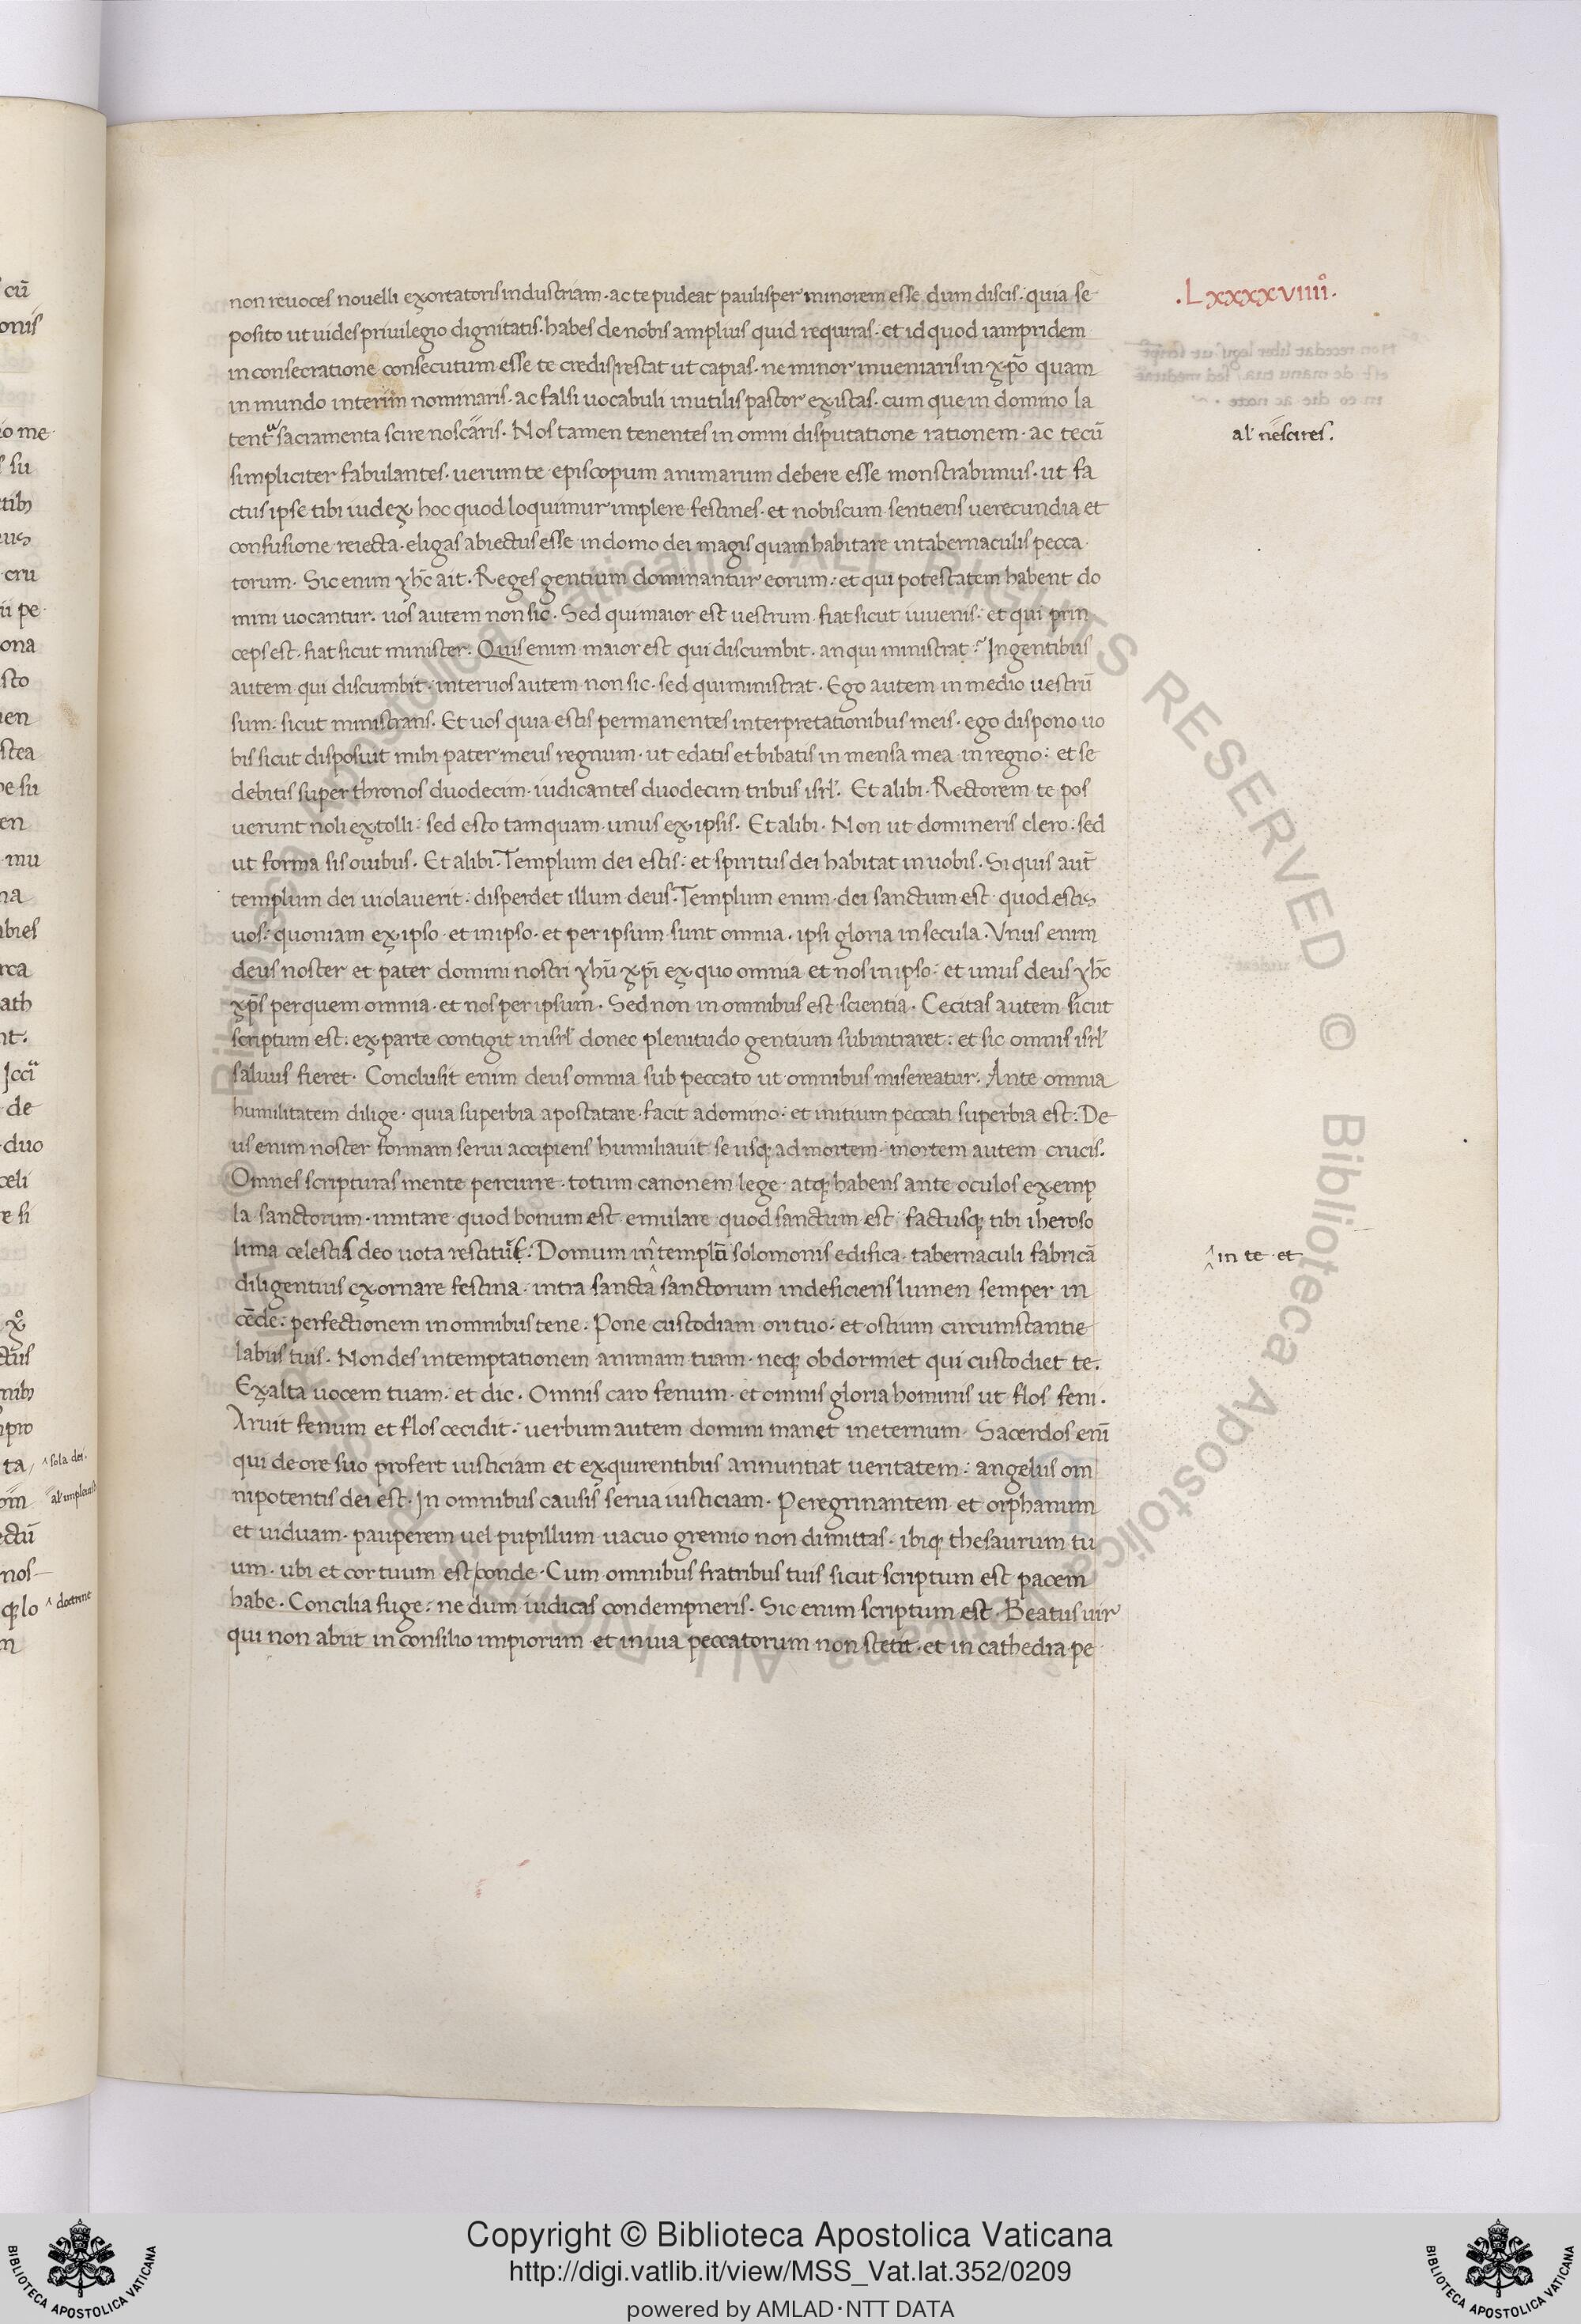 .Lxxxxviiii°.
non reuoces nouelli exortatoris industriam · ac te pudeat paulisper minorem esse dum discis : quia se
posito ut uides priuilegio dignitatis · habes de nobis amplius quid requiras · et id quod iampridem
in consecratione consecutum esse te credis / restat ut capias · ne minor inueniaris in xp̄o quam
in mundo interim nominaris · ac falsi uocabuli inutilis pastor existas · cum que in domino la
tent sacramenta scire noscaris · Nos tamen tenentes in omni disputatione rationem · ac tecū
al' nescires.
simpliciter fabulantes · uerum te episcopum animarum debere esse monstrabimus · ut fa
ctus ipse tibi iudex hoc quod loquimur implere festines · et nobiscum sentiens uerecundia et
confusione reiecta · eligas abiectus esse in domo dei magis quam habitare in tabernaculis pecca
torum · Sic enim yhc̄ ait · Reges gentium dominantur eorum : et qui potestatem habent do
mini uocantur · uos autem non sic · Sed qui maior est uestrum fiat sicut iuuenis : et qui prin
ceps est · fiat sicut minister · Quis enim maior est qui discumbit · an qui ministrat ? In gentibus
autem qui discumbit : inter uos autem non sic · sed qui ministrat · Ego autem in medio uestrū
sum · sicut ministrans · Et uos quia estis permanentes interpretationibus meis · ego dispono uo
bis sicut disposuit mihi pater meus regnum · ut edatis et bibatis in mensa mea in regno : et se
debitis super thronos duodecim · iudicantes duodecim tribus isrl' · Et alibi · Rectorem te pos
uerunt noli extolli : sed esto tamquam unus ex ipsis · Et alibi · Non ut domineris clero · sed
ut forma sis ouibus · Et alibi · Templum dei estis : et spiritus dei habitat in uobis · Si quis aut̄
templum dei uiolauerit · disperdet illum deus · Templum enim dei sanctum est quod estis
uos : quoniam ex ipso et in ipso · et per ipsum sunt omnia · ipsi gloria in secula · Vnus enim
deus noster et pater domini nostri yhū xp̄i ex quo omnia et nos in ipso : et unus deus yhc̄
xp̄s per quem omnia · et nos per ipsum · Sed non in omnibus est scientia · Cecitas autem sicut
scriptum est : ex parte contigit in isrl' donec plenitudo gentium subintraret : et sic omnis isrl'
saluus fieret · Conclusit enim deus omnia sub peccato ut omnibus misereatur · Ante omnia
humilitatem dilige · quia superbia apostatare facit a domino : et initium peccati superbia est : De
us enim noster formam serui accipiens humiliauit se usq; ad mortem · mortem autem crucis ·
Omnes scripturas mente percurre · totum canonem lege · atq; habens ante oculos exemp
la sanctorum · imitare quod bonum est emulare quod sanctum est · factusq; tibi iheroso
lima celestis deo uota restitue : Domum in templū solomonis edifica · tabernaculi fabricā
^ in te et
diligentius exornare festina · intra sancta sanctorum indeficiens lumen semper in
cēde : perfectionem in omnibus tene · Pone custodiam ori tuo : et ostium circumstantie
labiis tuis · Non des in temptationem animam tuam · neq; obdormiet qui custodiet te ·
Exalta uocem tuam : et dic · Omnis caro fenum · et omnis gloria hominis ut flos feni ·
Aruit fenum et flos cecidit : uerbum autem domini manet in eternum · Sacerdos eni̅
qui de ore suo profert iusticiam et exquirentibus annuntiat ueritatem : angelus om
nipotentis dei est · In omnibus causis serua iusticiam · Peregrinantem et orphanum
et uiduam · pauperem uel pupillum uacuo gremio non dimittas · ibiq; thesaurum tu
um · ubi et cor tuum est / conde · Cum omnibus fratribus tuis sicut scriptum est pacem
habe · Concilia fuge : ne dum iudicas condempneris · Sic enim scriptum est · Beatus uir
qui non abiit in consilio impiorum · et in uia peccatorum non stetit · et in cathedra pe
Copyright © Biblioteca Apostolica Vaticana
http://digi.vatlib.it/view/MSS_Vat.lat.352/0209
powered by AMLAD · NTT DATA
BIBLIOTECA APOSTOLICA VATICANA
BIBLIOTECA APOSTOLICA VATICANA